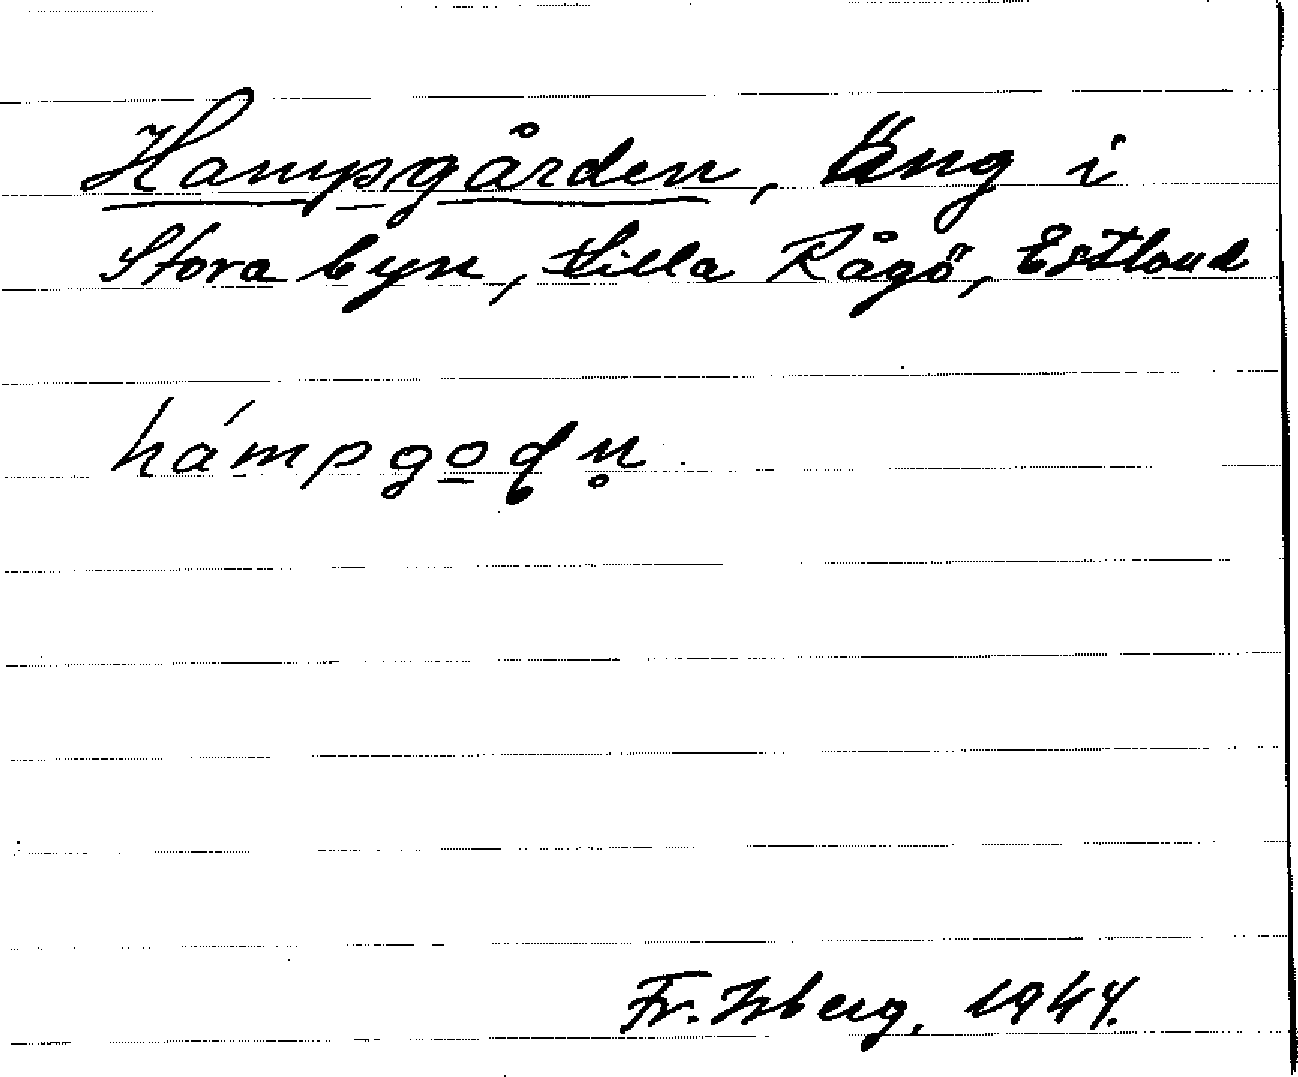 Hampgården, Äng i
Stora byn, Lilla Rågö, Estland
hámpgo̲dn̥
Fr. Isberg, 1944.